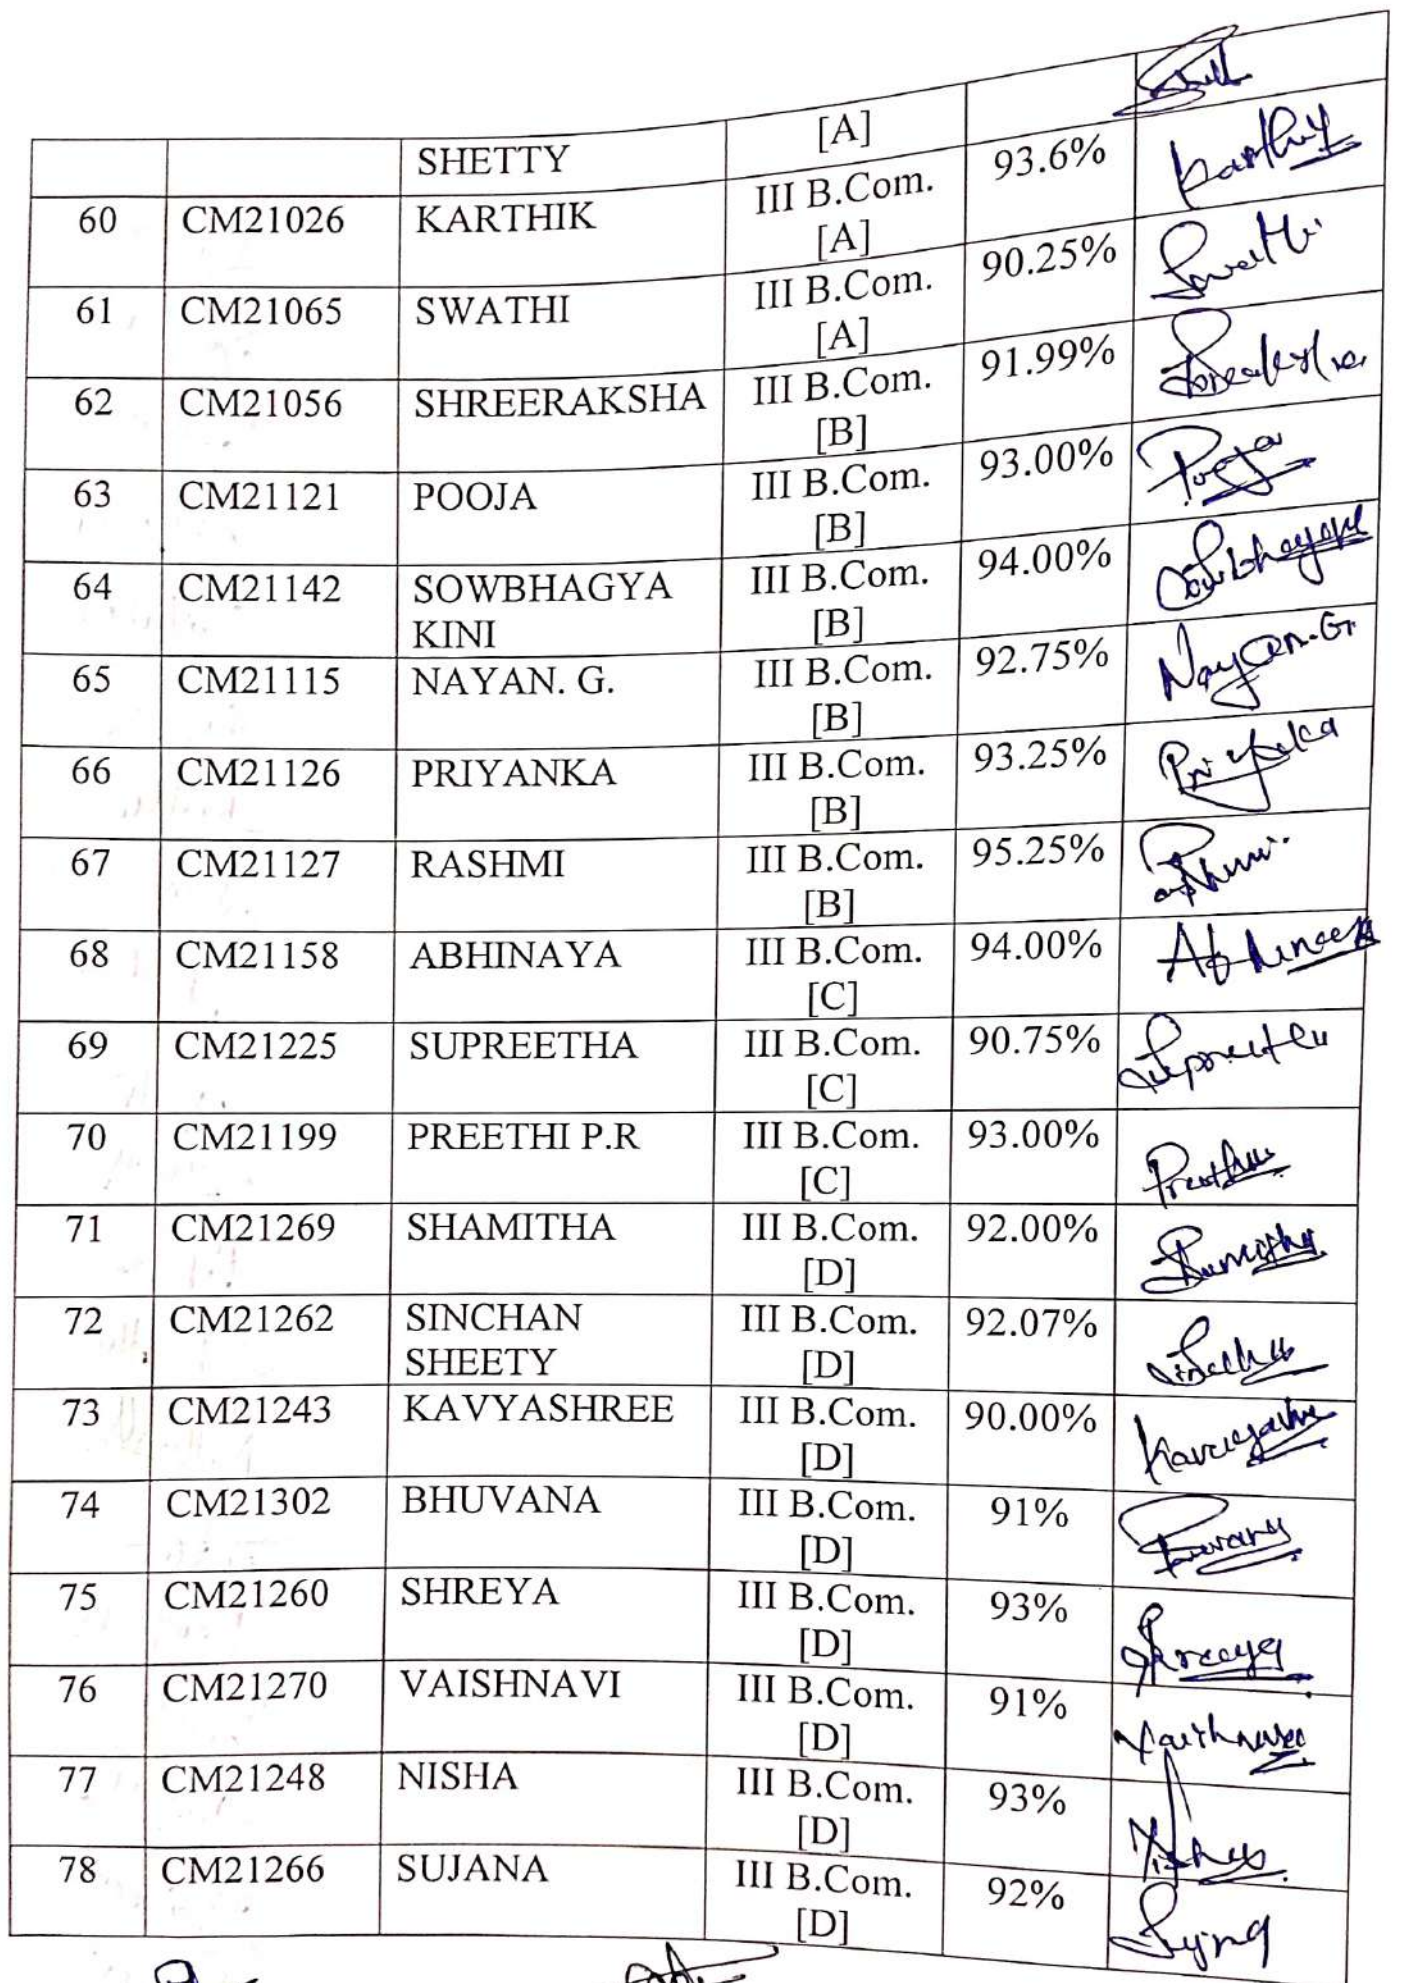 SHETTY [A]
60 CM21026 KARTHIK III B.Com. 93.6% Karthik
[A]
61 CM21065 SWATHI III B.Com. 90.25% Swathi
[A]
62 CM21056 SHREERAKSHA III B.Com. 91.99%
[B]
63 CM21121 POOJA III B.Com. 93.00% Pooja
[B]
64 CM21142 SOWBHAGYA III B.Com. 94.00%
KINI [B]
65 CM21115 NAYAN. G. III B.Com. 92.75% Nayan.G
[B]
66 CM21126 PRIYANKA III B.Com. 93.25% Priyanka
[B]
67 CM21127 RASHMI III B.Com. 95.25%
[B]
68 CM21158 ABHINAYA III B.Com. 94.00% Abhinaya
[C]
69 CM21225 SUPREETHA III B.Com. 90.75% Supreetha
[C]
70 CM21199 PREETHI P.R III B.Com. 93.00% Preethi
[C]
71 CM21269 SHAMITHA III B.Com. 92.00% Shamitha
[D]
72 CM21262 SINCHAN III B.Com. 92.07%
SHEETY [D]
73 CM21243 KAVYASHREE III B.Com. 90.00%
[D]
74 CM21302 BHUVANA III B.Com. 91%
[D]
75 CM21260 SHREYA III B.Com. 93% Shreeya
[D]
76 CM21270 VAISHNAVI III B.Com. 91% Vaishnavi
[D]
77 CM21248 NISHA III B.Com. 93% Nisha
[D]
78 CM21266 SUJANA III B.Com. 92%
[D]